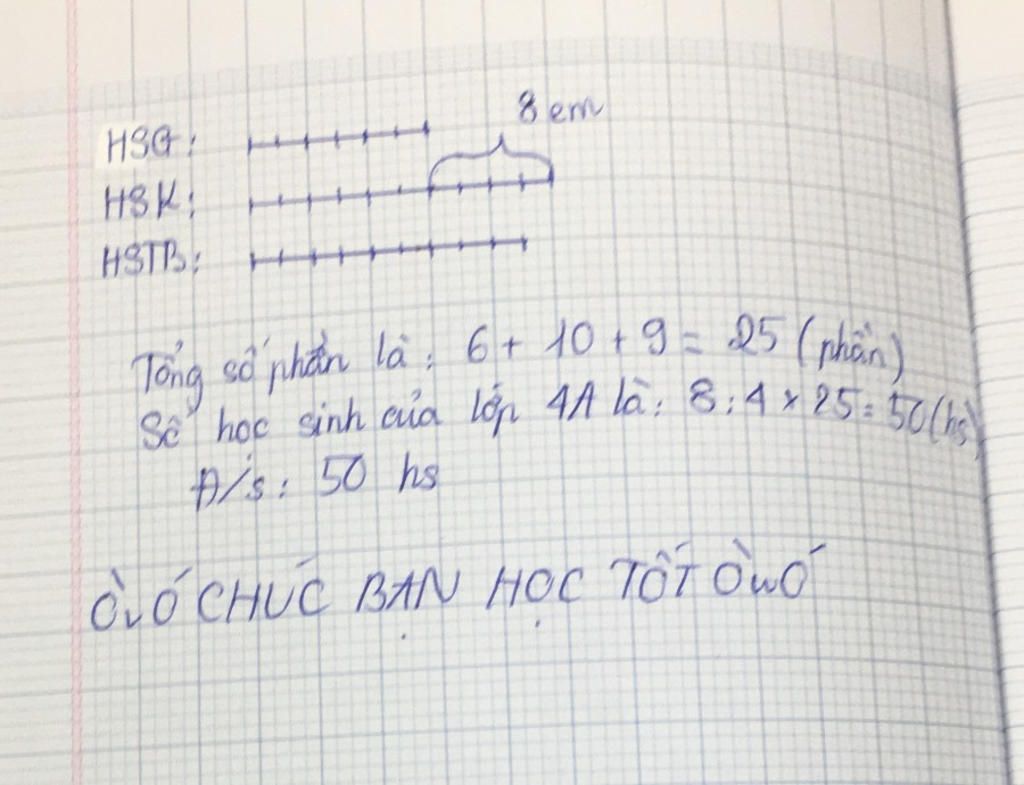 8 em
HSG:
HSK:
HSTB:
Tổng số phần là: 6 + 10 + 9 = 25 (phần)
Số học sinh của lớp 4A là: 8 : 4 x 25 = 50 (hs)
Đ/s: 50 hs
ÒvÓ CHÚC BẠN HỌC TỐT ÒwÓ